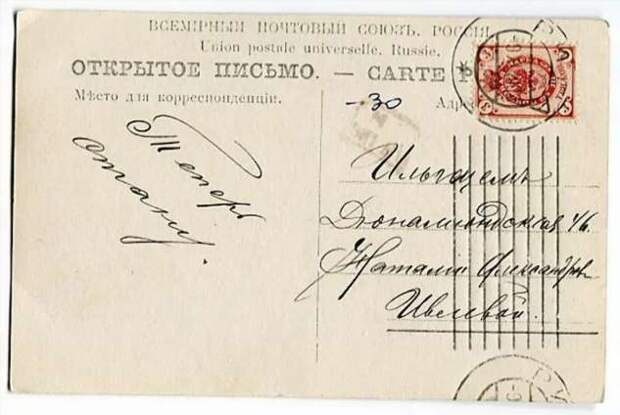 ВСЕМІРНЫЙ ПОЧТОВЫЙ СОЮЗЪ. РОССІЯ
Union postale universelle. Russie.
ОТКРЫТОЕ ПИСЬМО. — CARTE P
Мѣсто для корреспонденціи.
Адре
Теперь
отвѣчу.
-30
Ильгецемъ
Дюнамюндская 4б.
Наталіи Александров
Ивелевой.